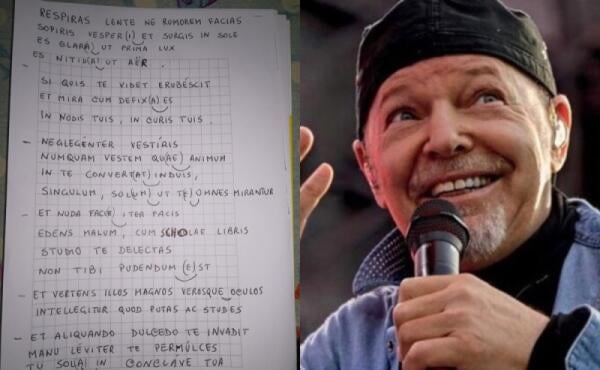 RESPIRAS LENTE NE RUMOREM FACIAS
SOPIRIS VESPER(I) ET SURGIS IN SOLE
ES CLARA) UT PRIMA LUX
ES NITID(A) UT AËR.
- SI QUIS TE VIDET ERUBÉSCIT
ET MIRA CUM DEFIX(A) ES
IN NODIS TUIS, IN CURIS TUIS.
- NEGLEGÉNTER VESTÍRIS
NUMQUAM VESTEM QU(AE) ANIMUM
IN TE CONVERT(AT) INDUIS,
SINGULUM, SOL(UM) UT TE) OMNES MIRANTUR
- ET NUDA FACI(E) ITER FACIS
EDENS MALUM, CUM SCHOLAE LIBRIS
STUDIO TE DELECTAS
NON TIBI PUDENDUM (E)ST
- ET VERTENS ILLOS MAGNOS VEROSQUE OCULOS
INTELLEGITUR QUOD PUTAS AC STUDES
- ET ALIQUANDO DULCEDO TE INVADIT
MANU LÉVITER TE PERMÚLCES
TU SOL(A) IN CONCLAVE TUA